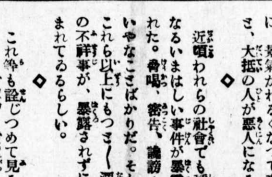 と、大抵の人が惡人になる
◇
近頃われらの社會でも
なるいまはしい事件が暴
れた。脅喝、密告、誣訪
いやなことばかりだ。そ
これら以上にもつと
の不祥事が、暴露されずに
まれてゐるらしい。
◇
これ等も詮じつめて見